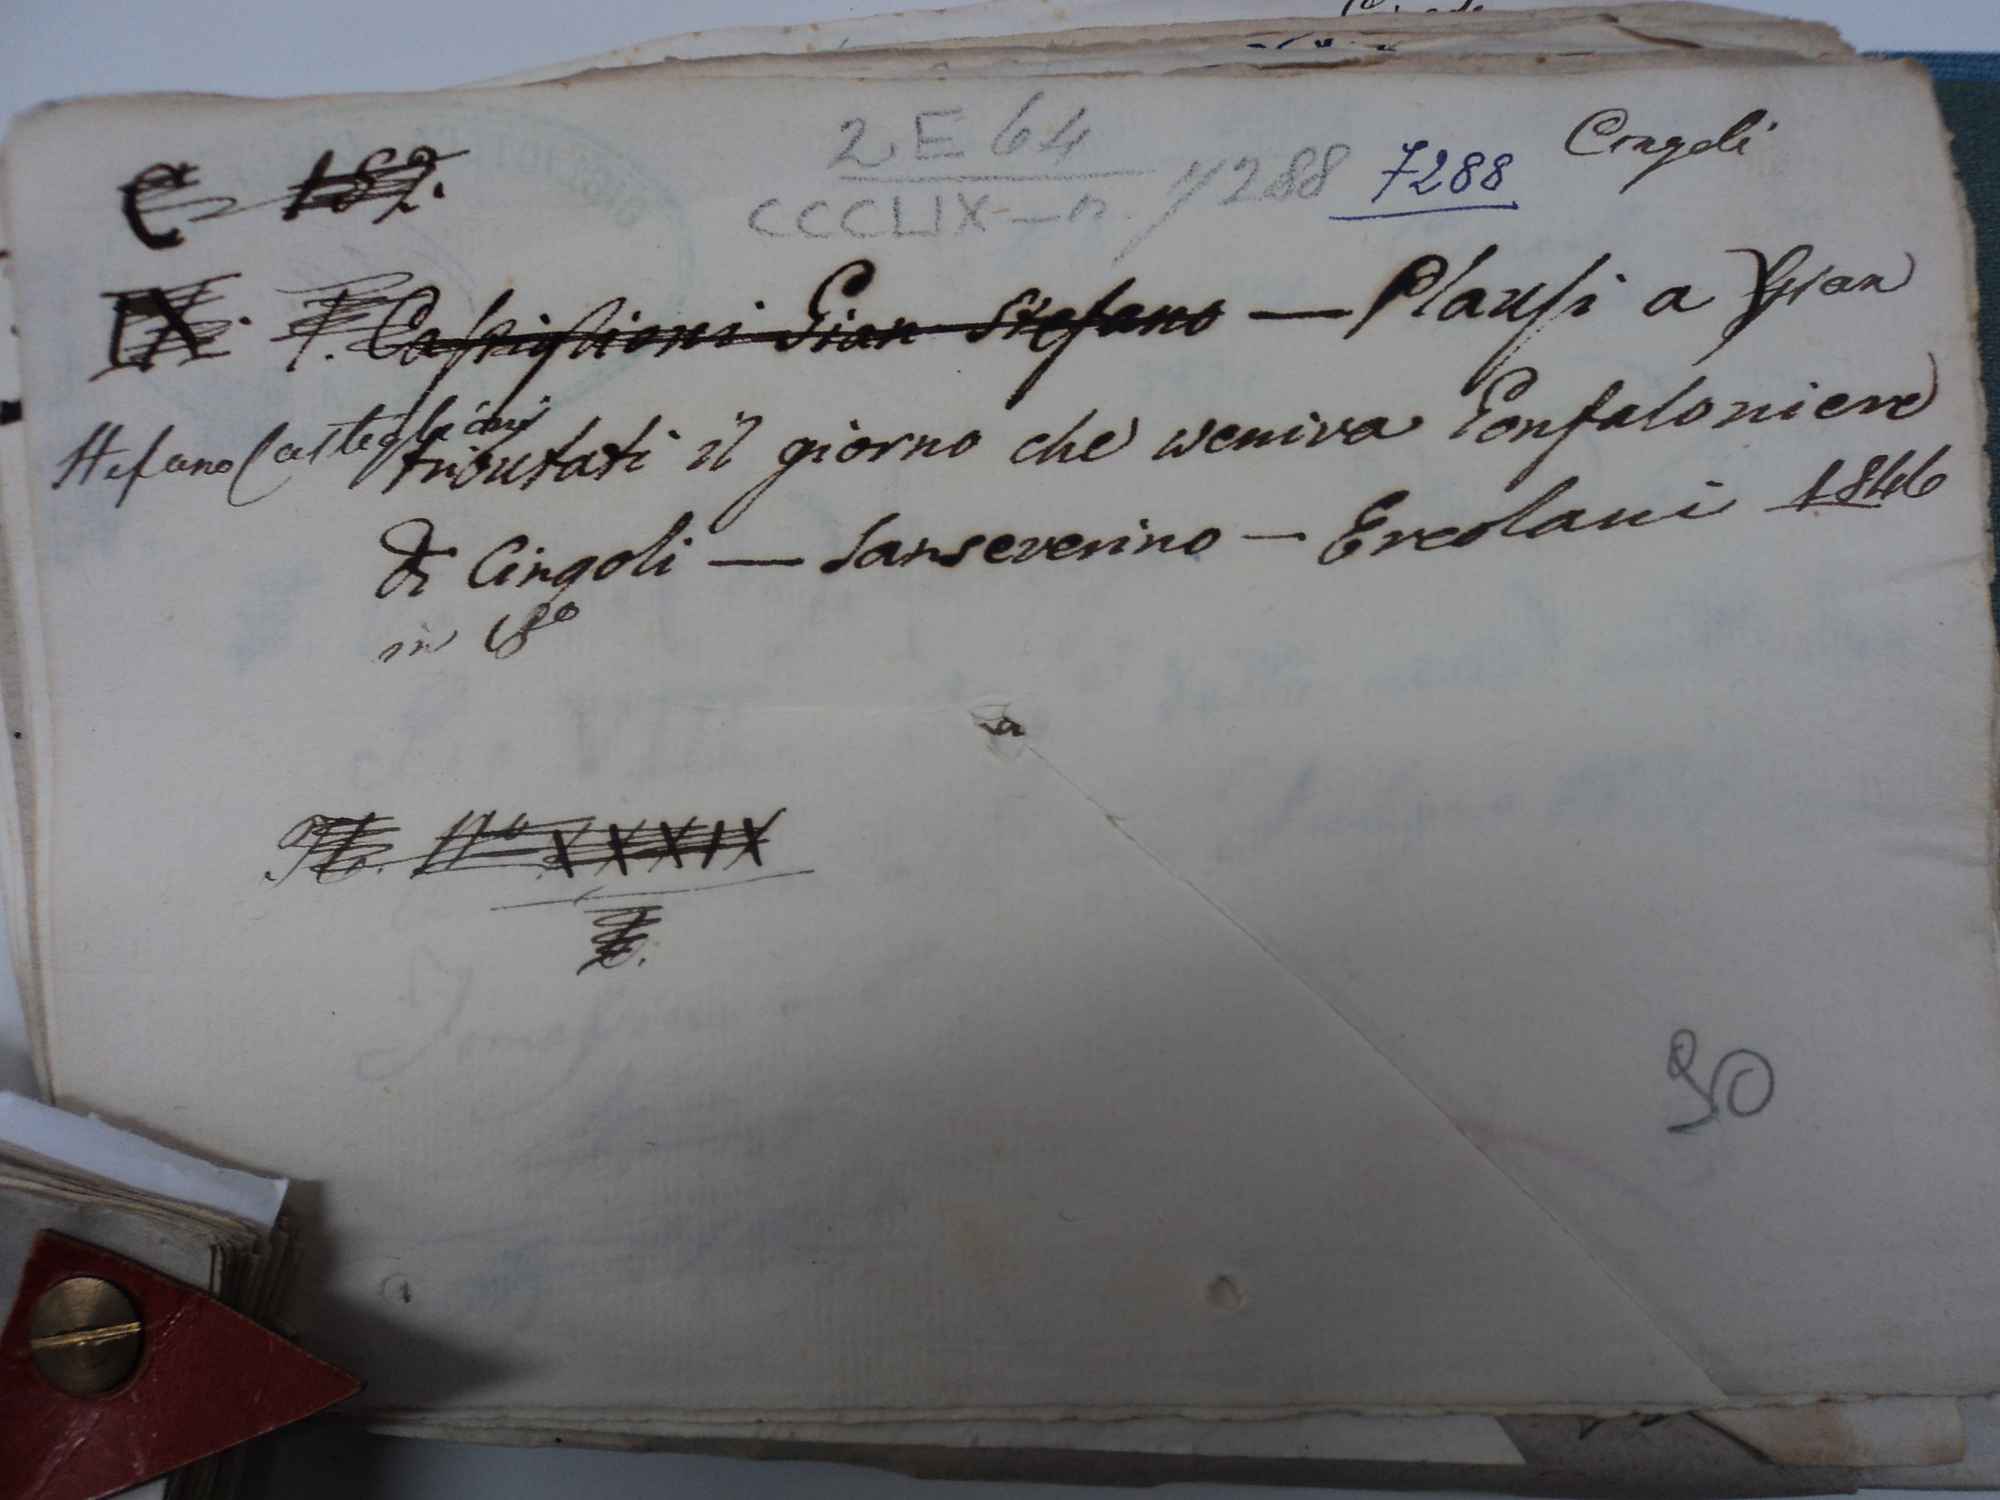 C 182.
2 E 64
CCCLIX - n. 7288
7288
Cingoli
IX. Castiglioni Gian Stefano — Plausi a Gian
Stefano Castiglioni
tributati il giorno che veniva Gonfaloniere
di Cingoli — Sanseverino — Ercolani 1846
in 8°
N° XXXIX
30